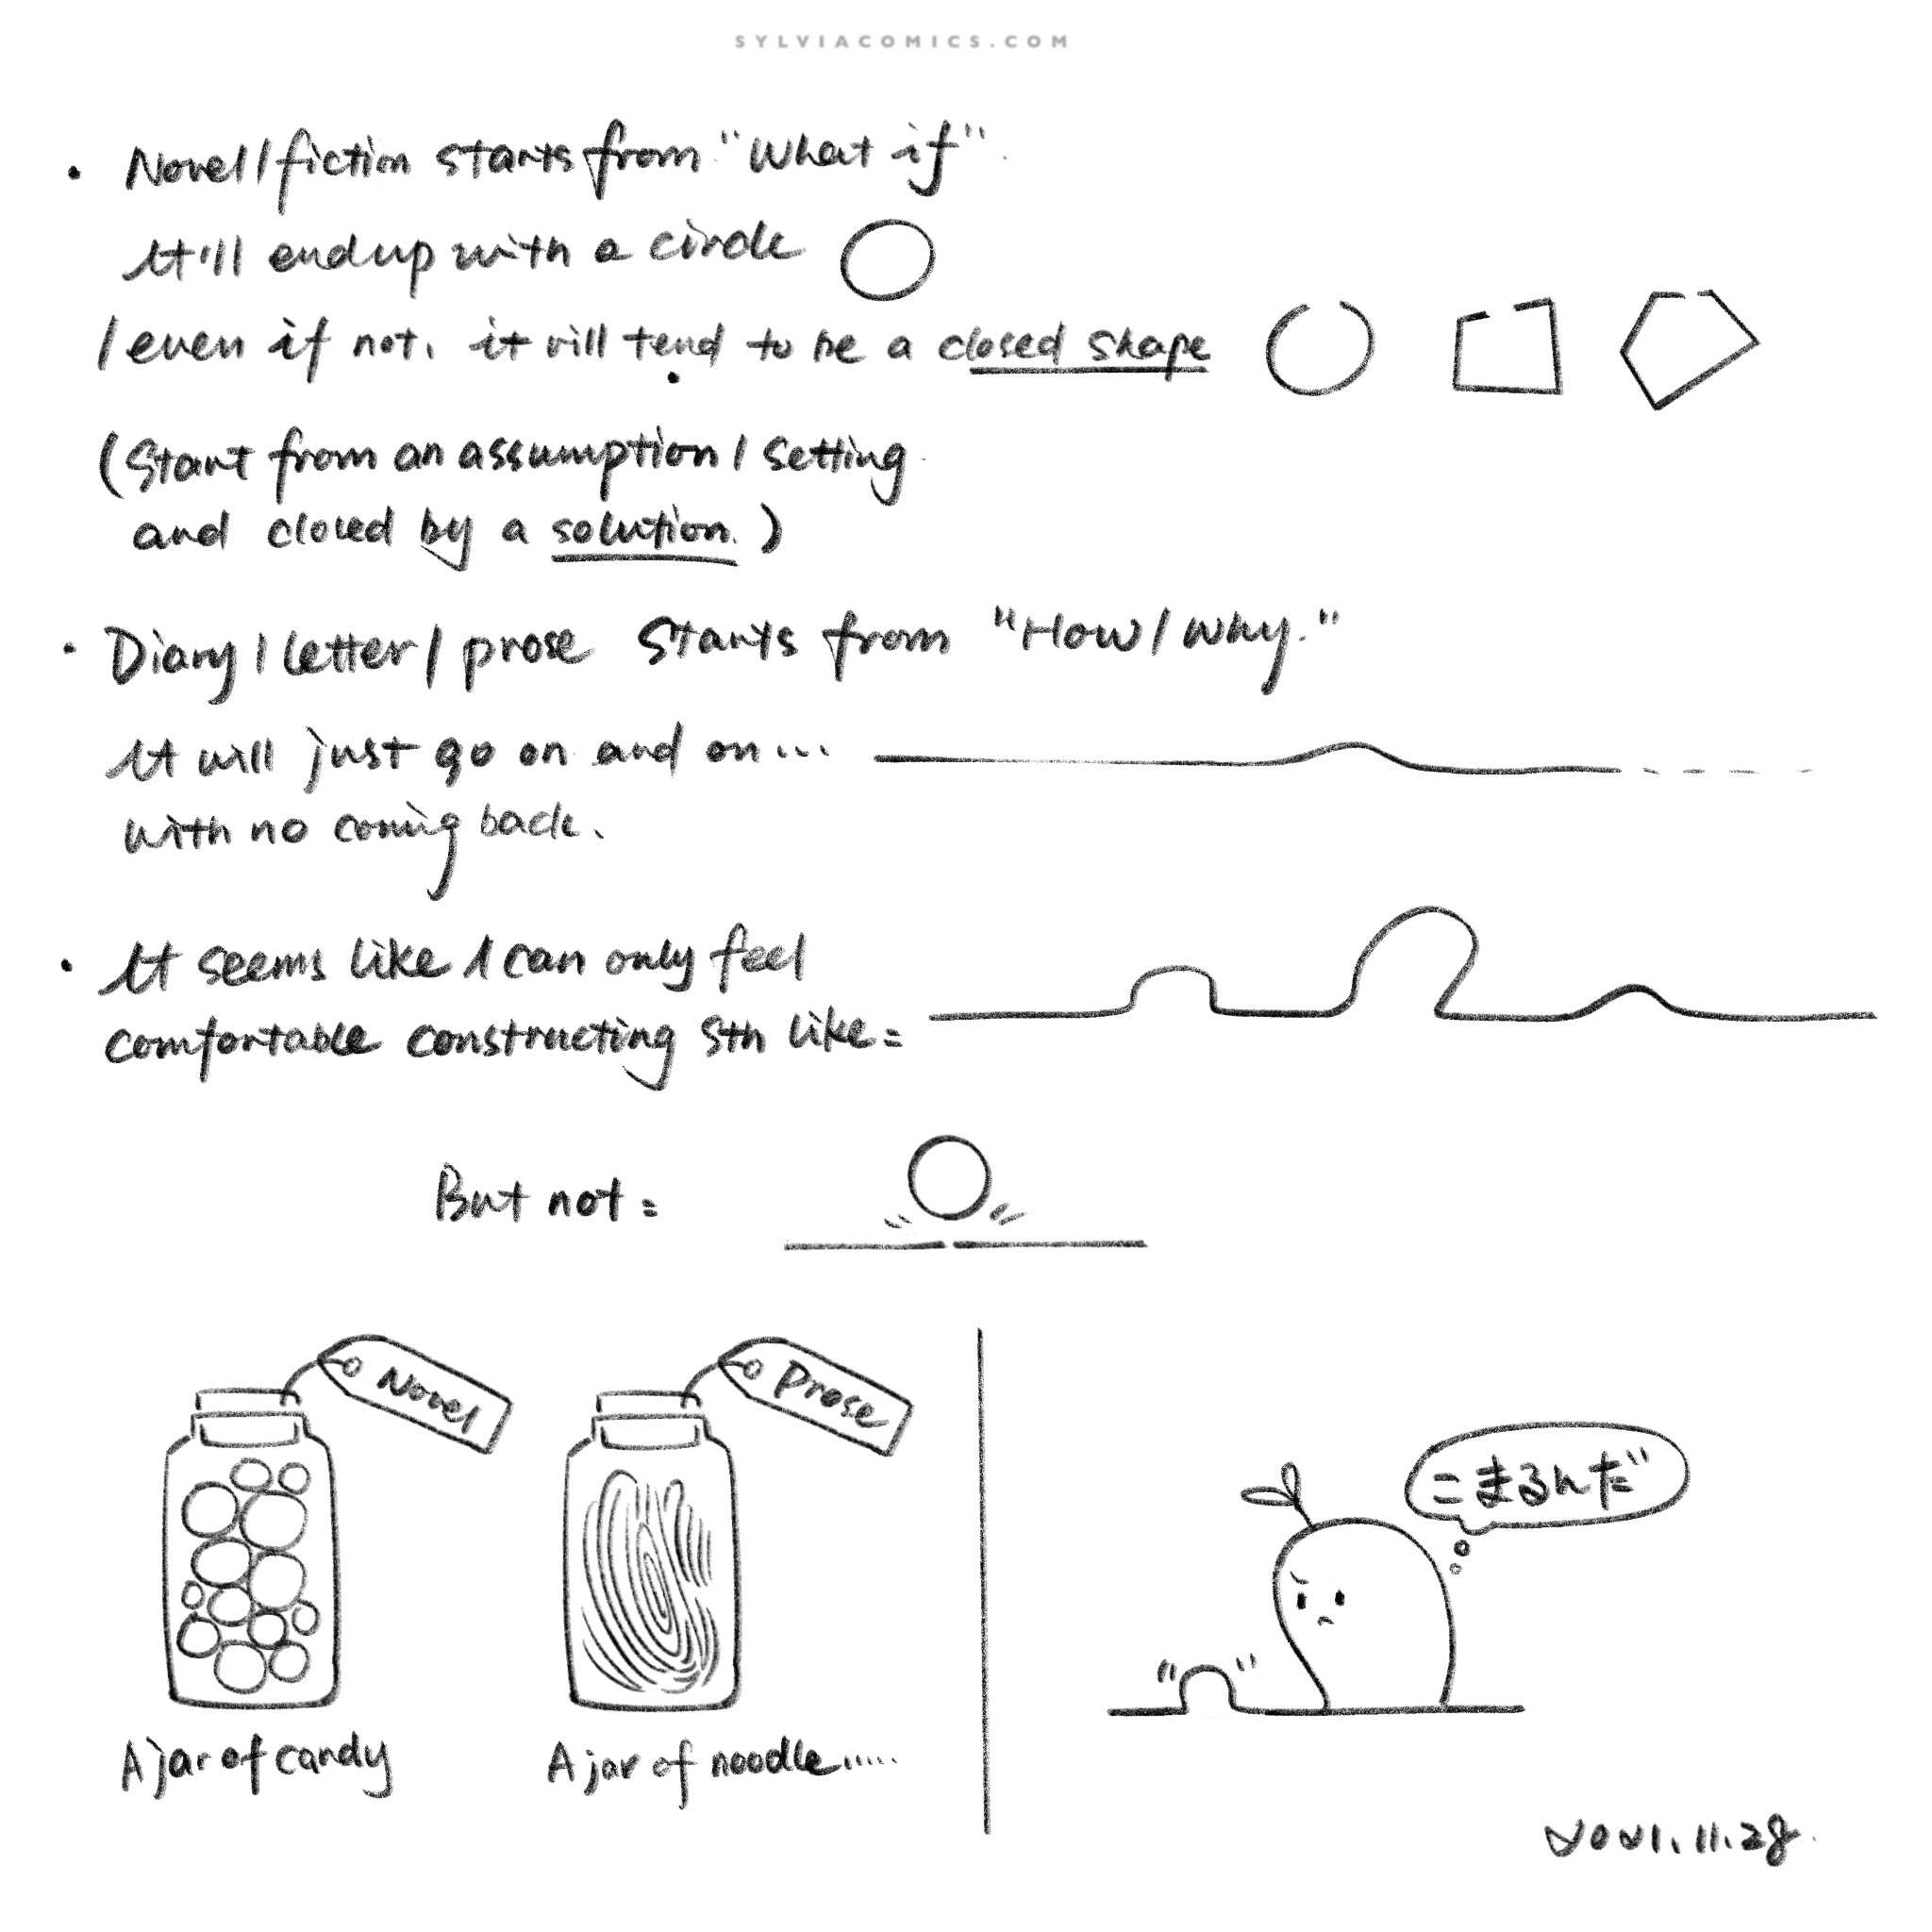 SYLVIACOMICS.COM
• Novel/fiction starts from "What if"
It'll end up with a circle
/ even if not, it will tend to be a closed shape
(Start from an assumption / setting
and closed by a solution.)
• Diary / letter / prose starts from "How / why."
It will just go on and on...
with no coming back.
• It seems like I can only feel
comfortable constructing sth like:
But not:
Novel
Prose
こまるんだ
A jar of candy
A jar of noodle.....
2021.11.28.